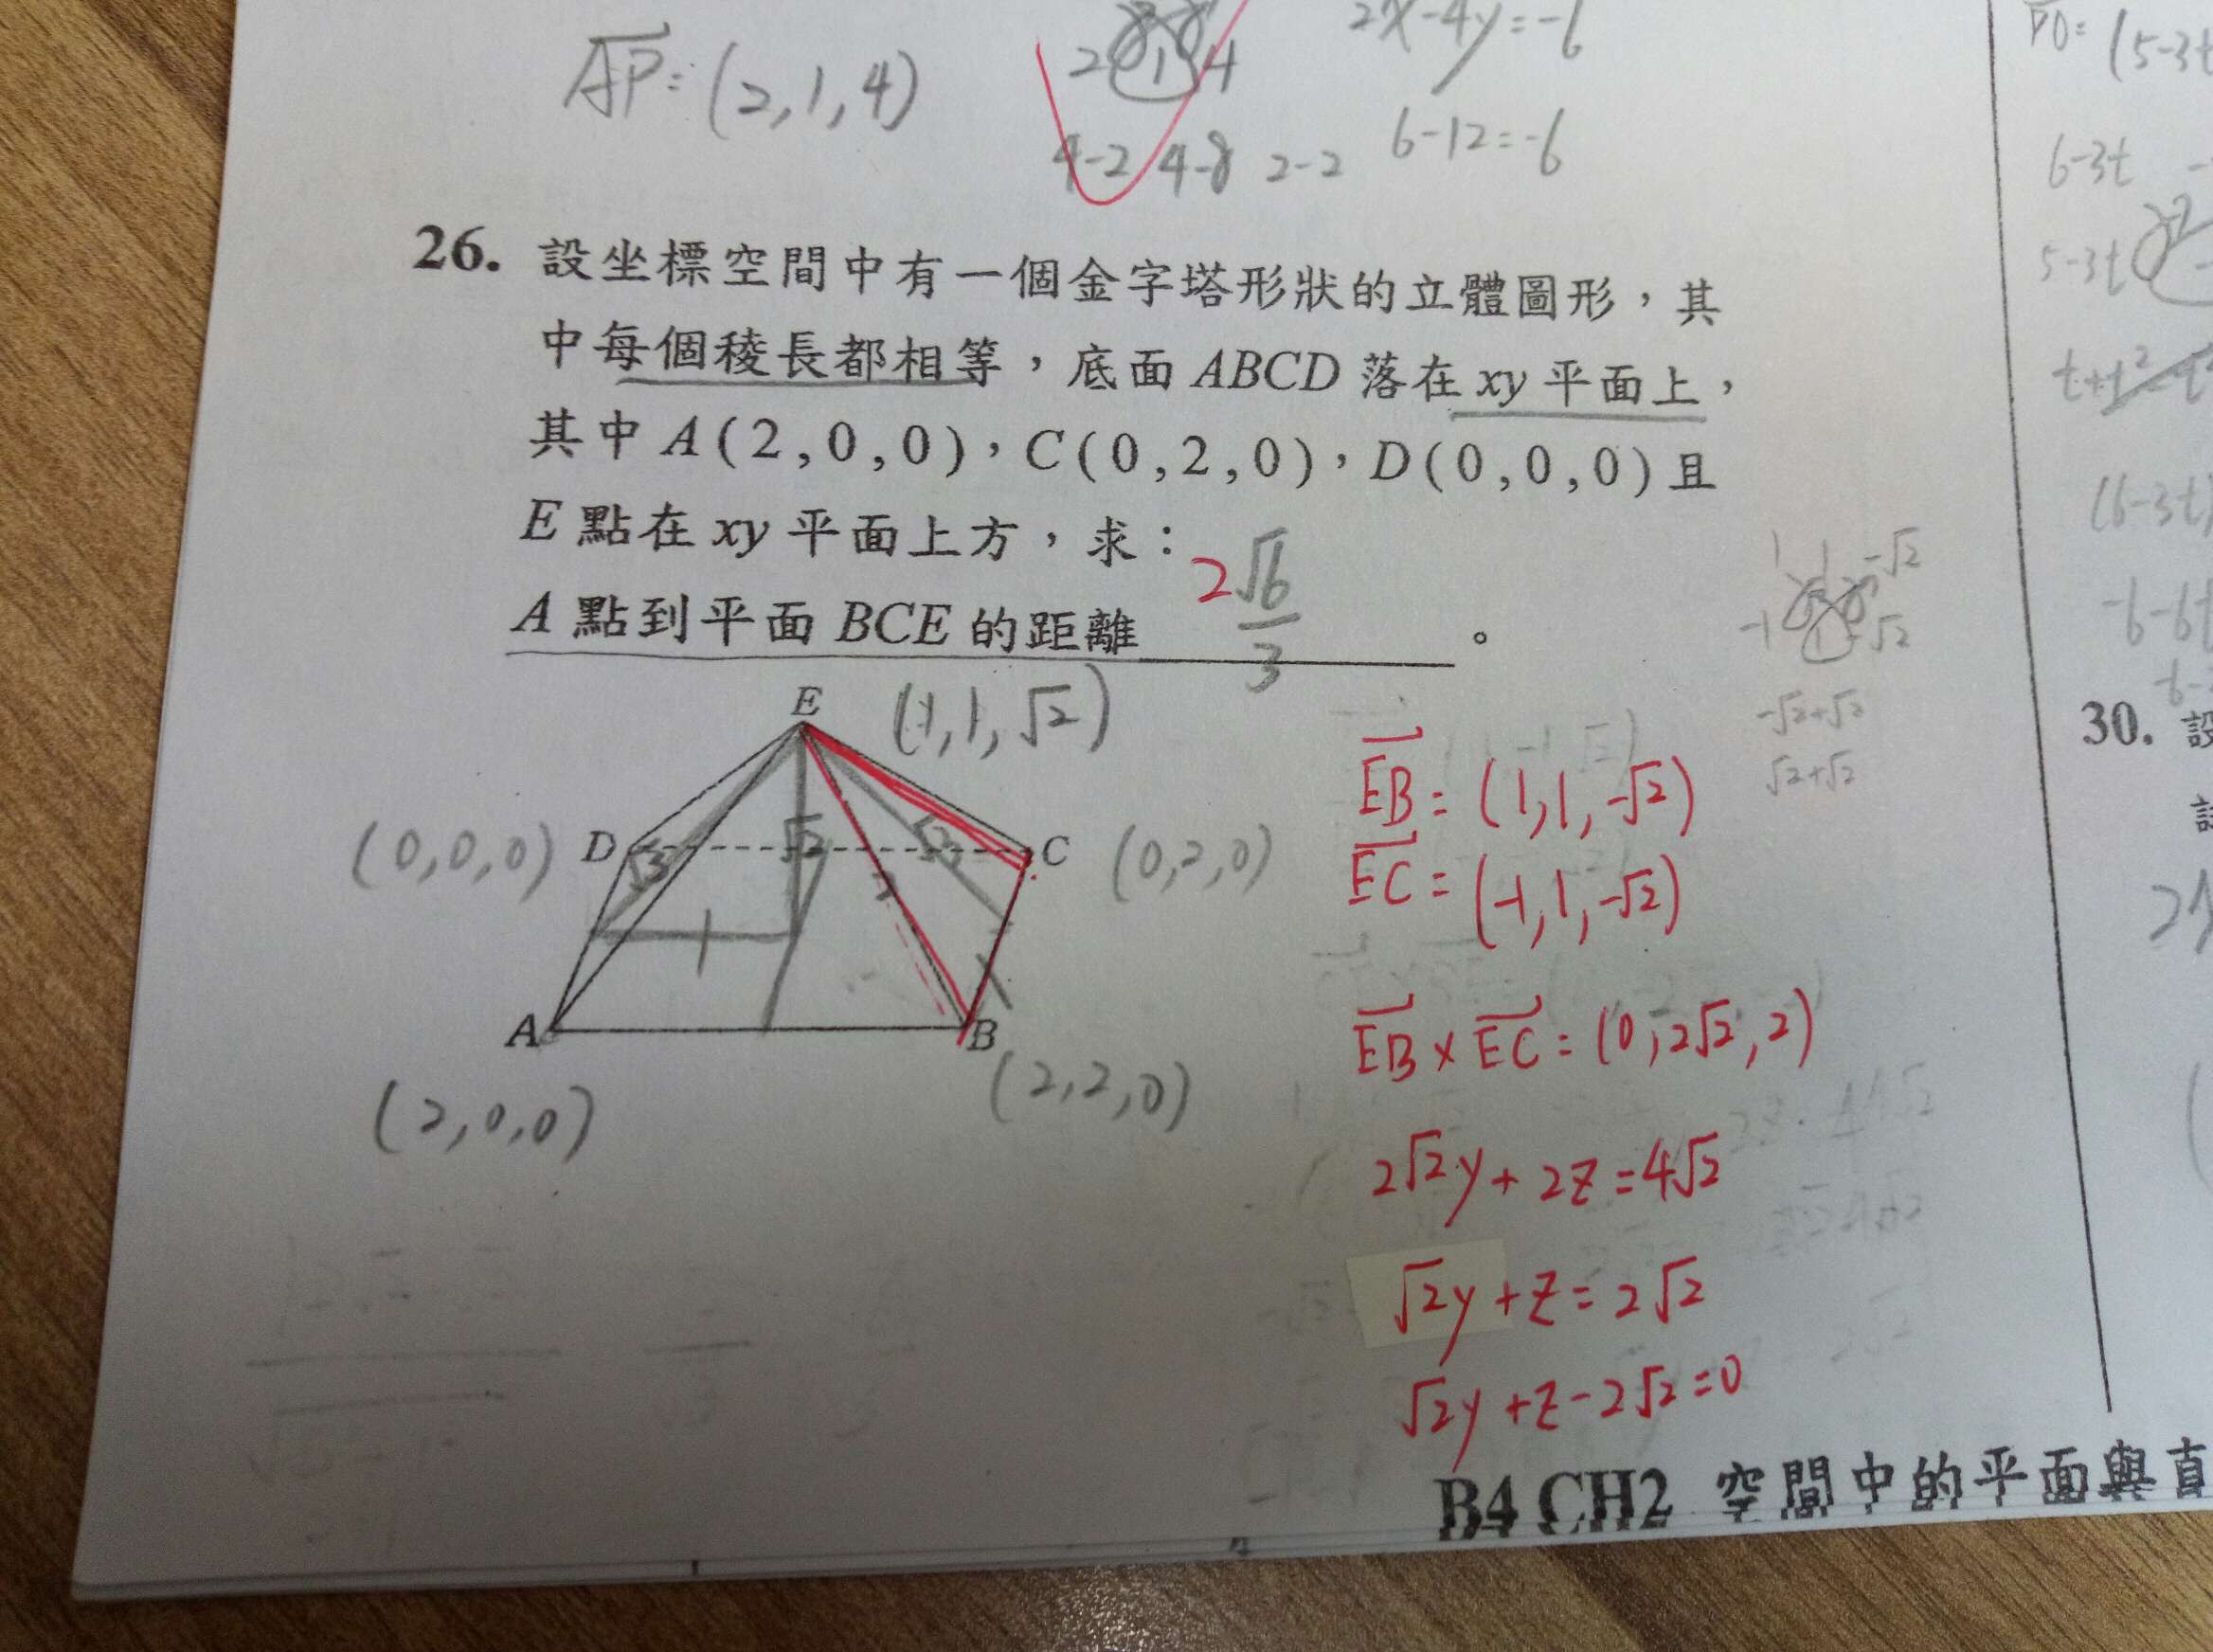 AP = (2,1,4)
2 1 4
4-2 4-8 2-2
2x-4y=-6
6-12=-6
26. 設坐標空間中有一個金字塔形狀的立體圖形，其
中每個稜長都相等，底面 ABCD 落在 xy 平面上，
其中 A(2,0,0)，C(0,2,0)，D(0,0,0)且
E 點在 xy 平面上方，求：
A 點到平面 BCE 的距離 2√6/3 。
E (1,1,√2)
(0,0,0) D √3 √2 √3 C (0,2,0)
1
A B
(2,0,0) (2,2,0)
1 1 -√2
-1 1 -√2
-√2+√2
√2+√2
EB = (1,1,-√2)
EC = (-1,1,-√2)
EB × EC = (0,2√2,2)
2√2y+2z=4√2
√2y+z=2√2
√2y+z-2√2=0
B4 CH2 空間中的平面與直
PO= (5-3t
6-3t
5-3t
(6-3t)
-6-6t
30. 設